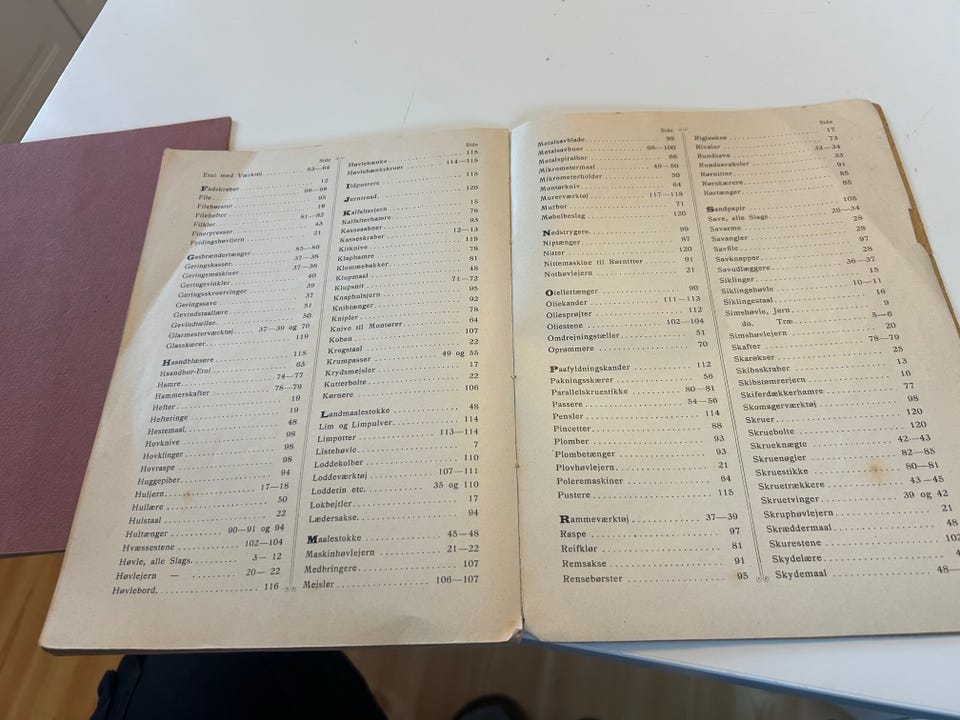 Side
Etui med Værktøj 63—64
Fadskraber 12
File 98—99
Filebørster 95
Filehefter 19
Filkløer 81—82
Finerpresser 43
Fyldingshøvljern 21
Gasbrændertænger 85—86
Geringskasser 37—38
Geringsmaskiner 37—38
Geringsvinkler 40
Geringsskruetvinger 39
Geringssave 37
Gevindstaallære 51
Gevindtæller 50
Glarmesterværktøj 37—39 og 76
Glasskærer 119
Haandblæsere 115
Haandbor-Etui 63
Hamre 74—77
Hammerskafter 78—79
Hefter 19
Hefteringe 19
Hestemaal 48
Hovknive 98
Hovklinger 98
Hovraspe 98
Huggepiber 94
Huljern 17—18
Hullære 50
Hulstaal 22
Hultænger 90—91 og 94
Hvæssestene 102—104
Høvle, alle Slags 3—12
Høvljern — 20—22
Høvlebord 116
Side
Høvlebænke 115
Høvlebænkskruer 114—115
Ildpustere 115
Jerntraad 120
Kalfaterjern 15
Kalfaterhamre 78
Kassesabner 93
Kasseskraber 12—13
Kitknive 119
Klaphamre 78
Klemmebakker 81
Klupmaal 48
Klupsnit 71—72
Knaphulsjern 95
Knibtænger 92
Knipler 78
Knive til Montører 64
Koben 107
Krogstaal 22
Krumpasser 49 og 55
Krydsmejsler 17
Kutterbolte 22
Kørnere 106
Landmaalestokke 48
Lim og Limpulver 114
Limpotter 113—114
Listehøvle 7
Loddekolber 110
Loddeværktøj 107—111
Loddetin etc. 35 og 110
Lokbejtler 17
Lædersakse 94
Maalestokke 45—48
Maskinhøvlejern 21—22
Medbringere 107
Mejsler 106—107
Side
Metalsavblade 99
Metalsavbuer 98—100
Metalspiralbor 66
Mikrometermaal 49—50
Mikrometerholder 50
Montørkniv 64
Murerværktøj 117—118
Murbor 71
Møbelbeslag 120
Nedstrygere 99
Niptænger 87
Nitter 120
Nittemaskine til Rørnitter 91
Nothøvlejern 21
Oiellertænger 90
Oliekander 111—113
Oliesprøjter 112
Oliestene 102—104
Omdrejningstæller 51
Oprømmere 70
Paafyldningskander 112
Pakningsskærer 56
Parallelskruestikke 80—81
Passere 54—56
Pensler 114
Pincetter 88
Plomber 93
Plombetænger 93
Plovhøvlejern 21
Poleremaskiner 64
Pustere 115
Rammeværktøj 37—39
Raspe 97
Reifklør 81
Remsakse 91
Rensebørster 95
Side
Rigleøkse 17
Rivaler 73
Rundsave 33—34
Rundsavsksler 33
Rørnitter 91
Rørskærere 85
Rørtænger 85
Sandpapir 105
Save, alle Slags 26—34
Savarme 28
Savangler 28
Savfile 97
Savknapper 28
Savudlæggere 36—37
Siklinger 15
Siklingshøvle 10—11
Siklingestaal 16
Simshøvle, Jern 9
do. Træ 5—6
Simshøvlejern 20
Skafter 78—79
Skarøkser 25
Skibsskraber 13
Skibstømrerjern 16
Skiferdækkerhamre 77
Skomagerværktøj 98
Skruer 120
Skruebolte 120
Skrueknægte 42—43
Skruenøgler 82—85
Skruestikke 80—81
Skruetrækkere 43—45
Skruetvinger 39 og 42
Skruphøvlejern 21
Skræddermaal 48
Skurestene 102
Skydelære
Skydemaal 48—